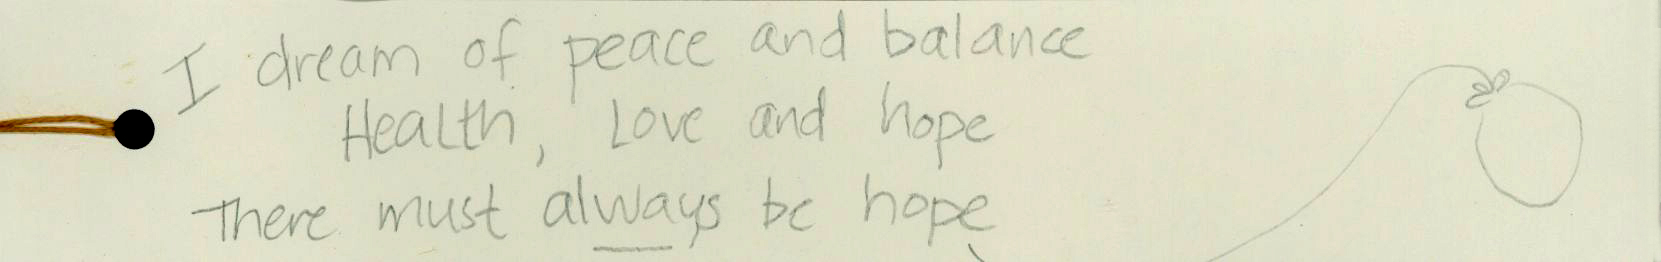 I dream of peace and balance
Health, Love and hope
There must always be hope